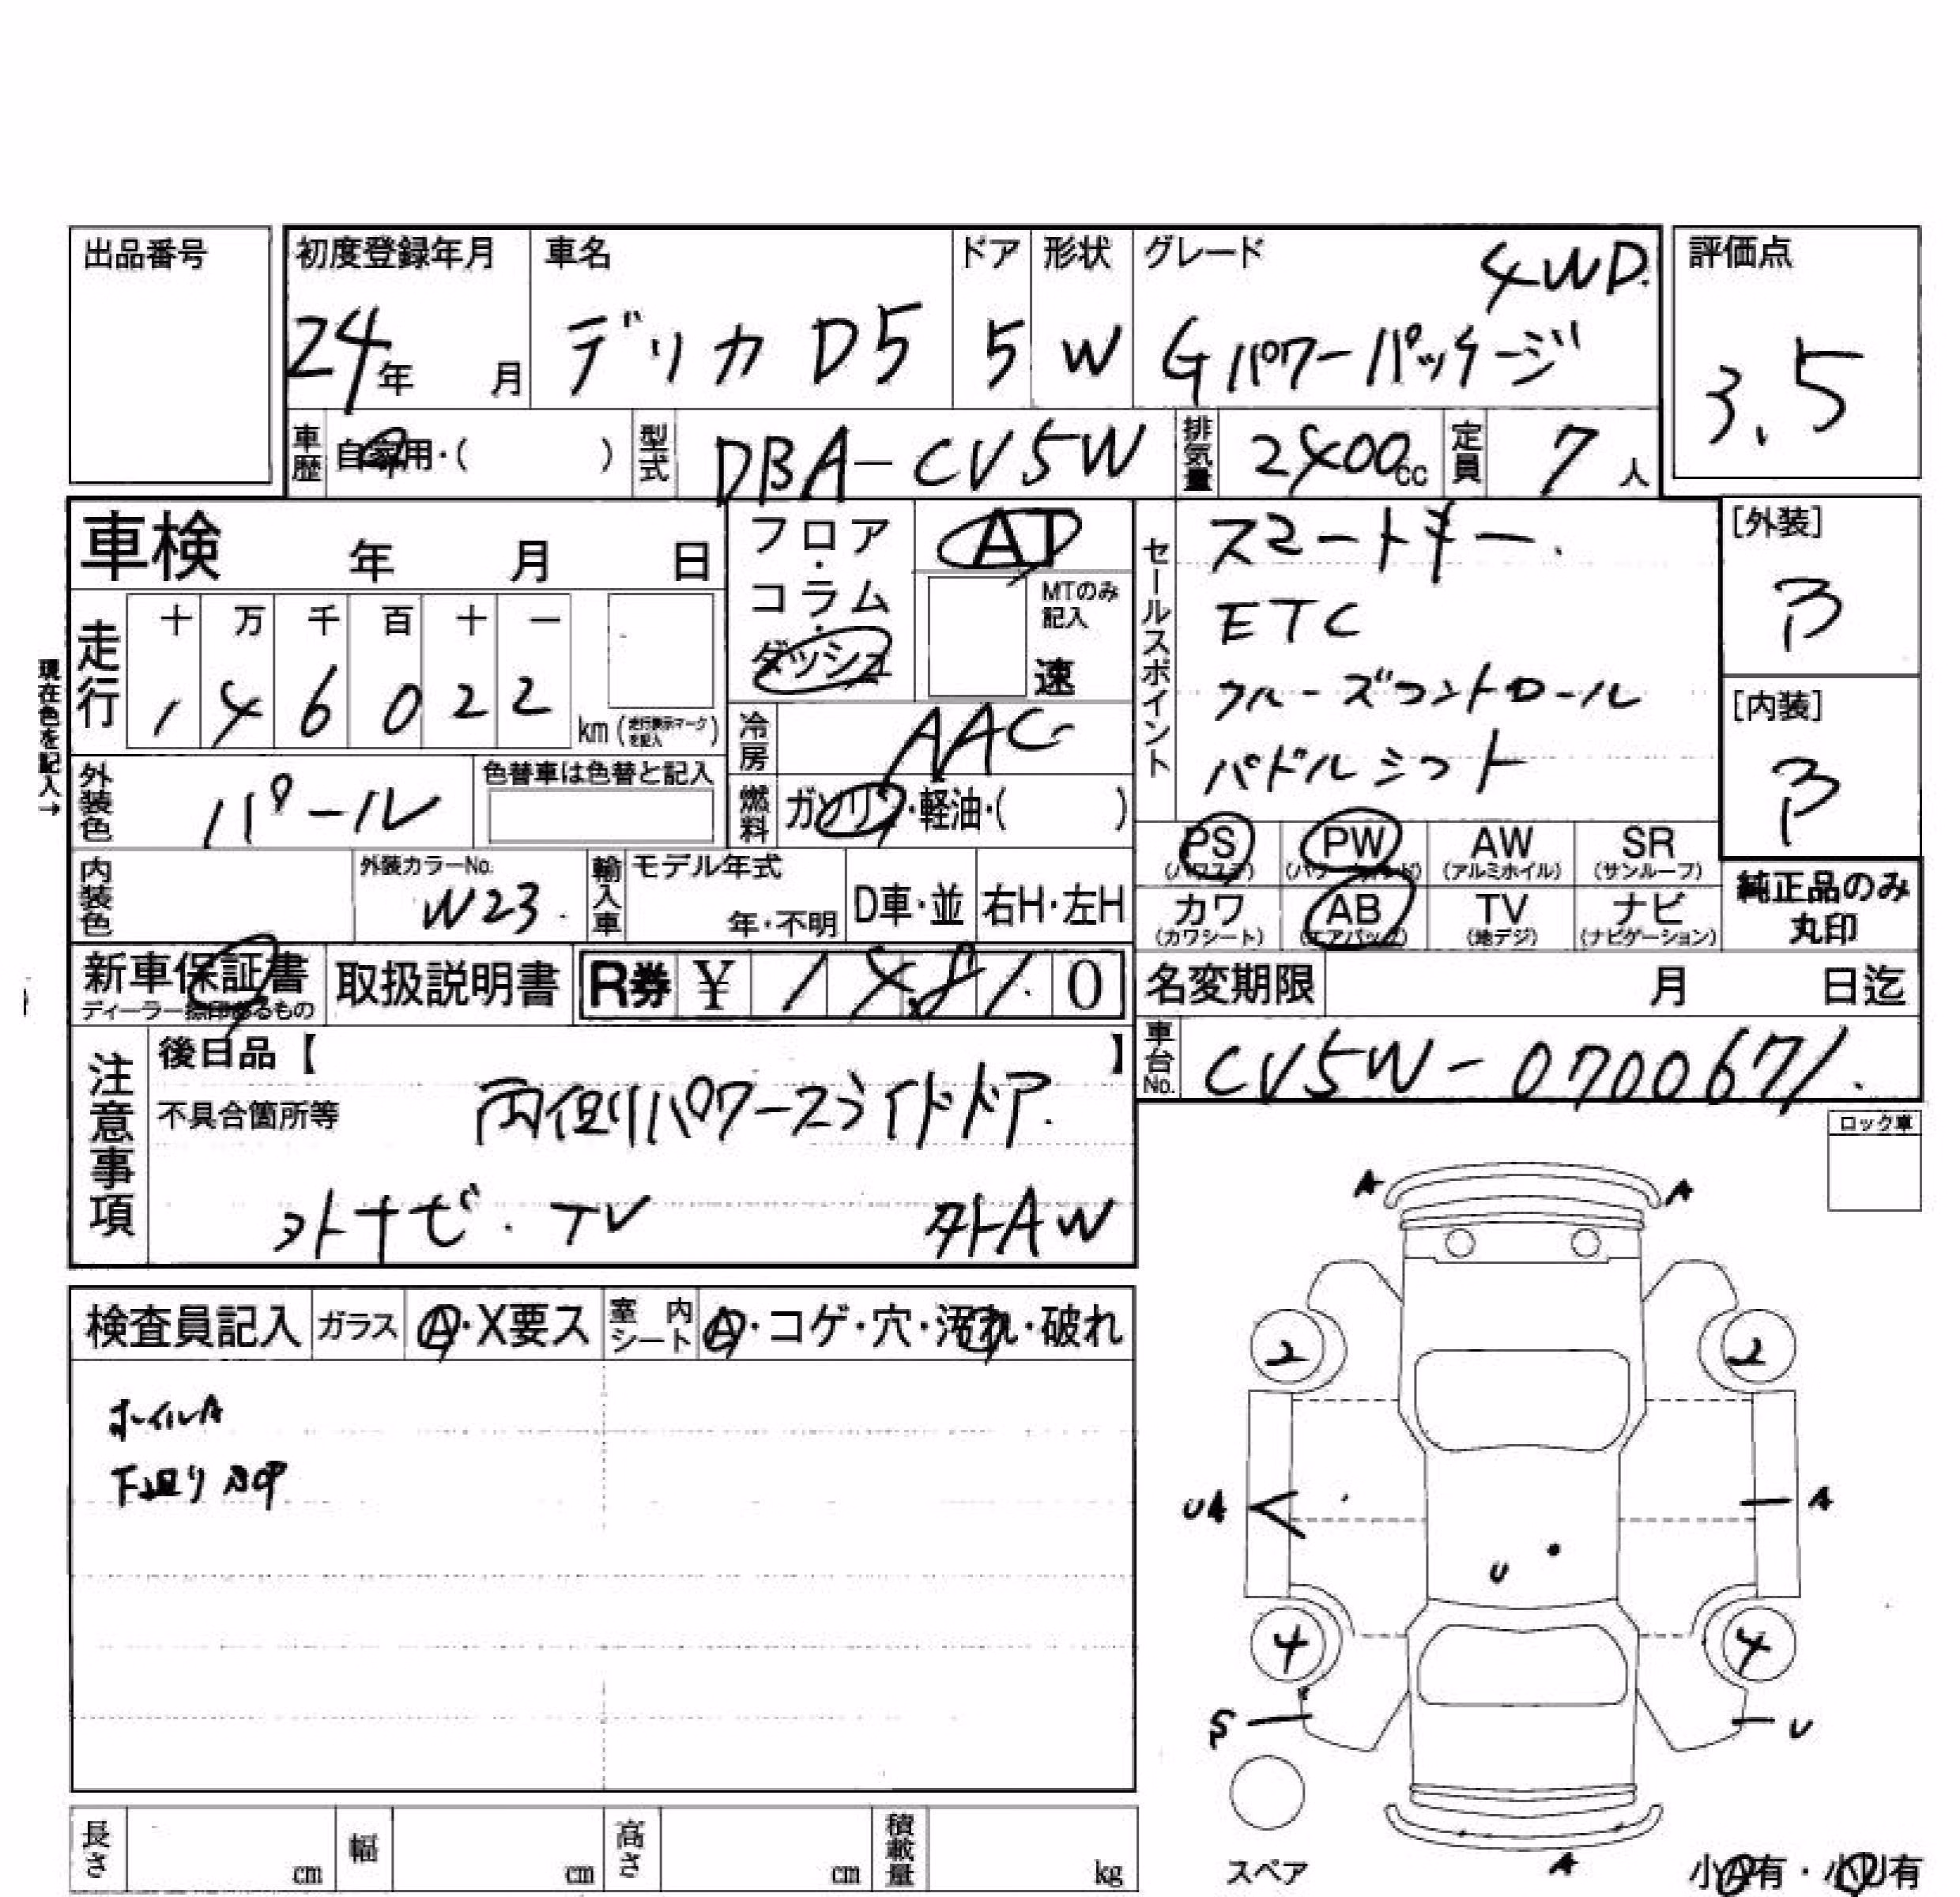 出品番号
初度登録年月 車名 ドア 形状 グレード 4WD. 評価点
24年 月 デリカ D5 5 W Gパワーパッケージ 3.5
車歴 自家用・( ) 型式 DBA-CV5W 排気量 2400cc 定員 7人
車検 年 月 日
フロア・コラム・ダッシュ AT
MTのみ記入
速
走行 十 万 千 百 十 一
1 4 6 0 2 2 km (走行表示マークを記入)
現在色を記入→
冷房 AAC
外装色 パール 色替車は色替と記入
燃料 ガソリン・軽油・( )
内装色 外装カラーNo. W23. 輸入車 モデル年式 年・不明 D車・並 右H・左H
セールスポイント
スマートキー.
ETC
クルーズコントロール
パドルシフト
[外装]
B
[内装]
B
PS (パワステ) PW (パワーウィンド) AW (アルミホイル) SR (サンルーフ)
カワ (カワシート) AB (エアバッグ) TV (地デジ) ナビ (ナビゲーション)
純正品のみ
丸印
新車保証書 ディーラー捺印あるもの 取扱説明書 R券 ¥ 1 4.8 1. 0
名変期限 月 日迄
車台No. CV5W-0700671.
注意事項
後日品【 】
不具合箇所等 両側パワースライドドア.
外ナビ.TV 外AW
ロック車
検査員記入 ガラス A・X要ス 室内シート A・コゲ・穴・汚れ・破れ
ホイルA
下廻り
A A
2 2
UA A
U
4 4
S U
スペア
A
小A有・小U有
長さ cm 幅 cm 高さ cm 積載量 kg